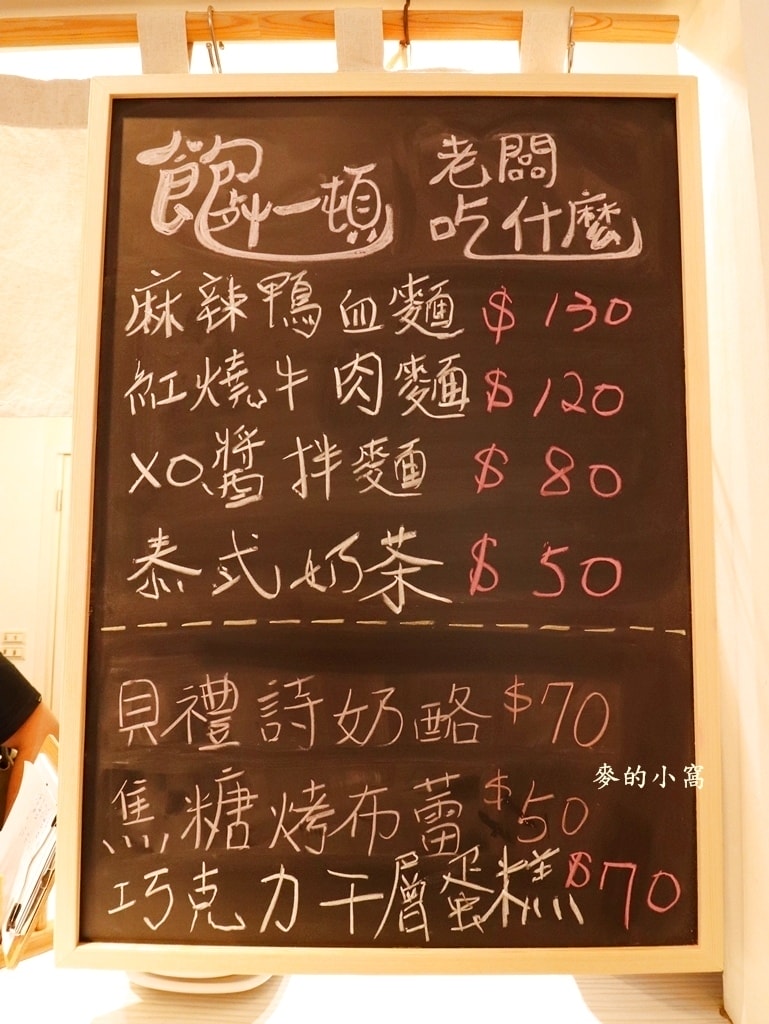 飽一頓 老闆
吃什麼
麻辣鴨血麵 $130
紅燒牛肉麵 $120
XO醬拌麵 $80
泰式奶茶 $50
貝禮詩奶酪 $70
麥的小窩
焦糖烤布蕾 $50
巧克力千層蛋糕 $70